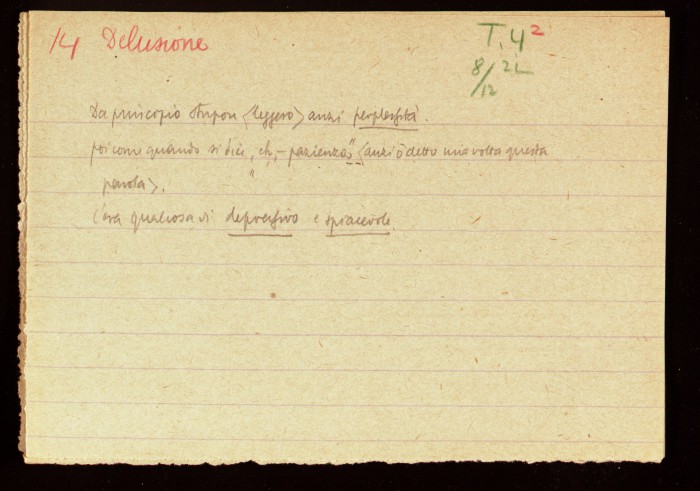 14 Delusione
T. 4²
8/12 2L
Da principio stupon <leggero> anzi perplessità.
poi come quando si dice, "eh, – pazienza" <anzi ò detto una volta questa
parola>.
C'era qualcosa di depressivo e spiacevole.